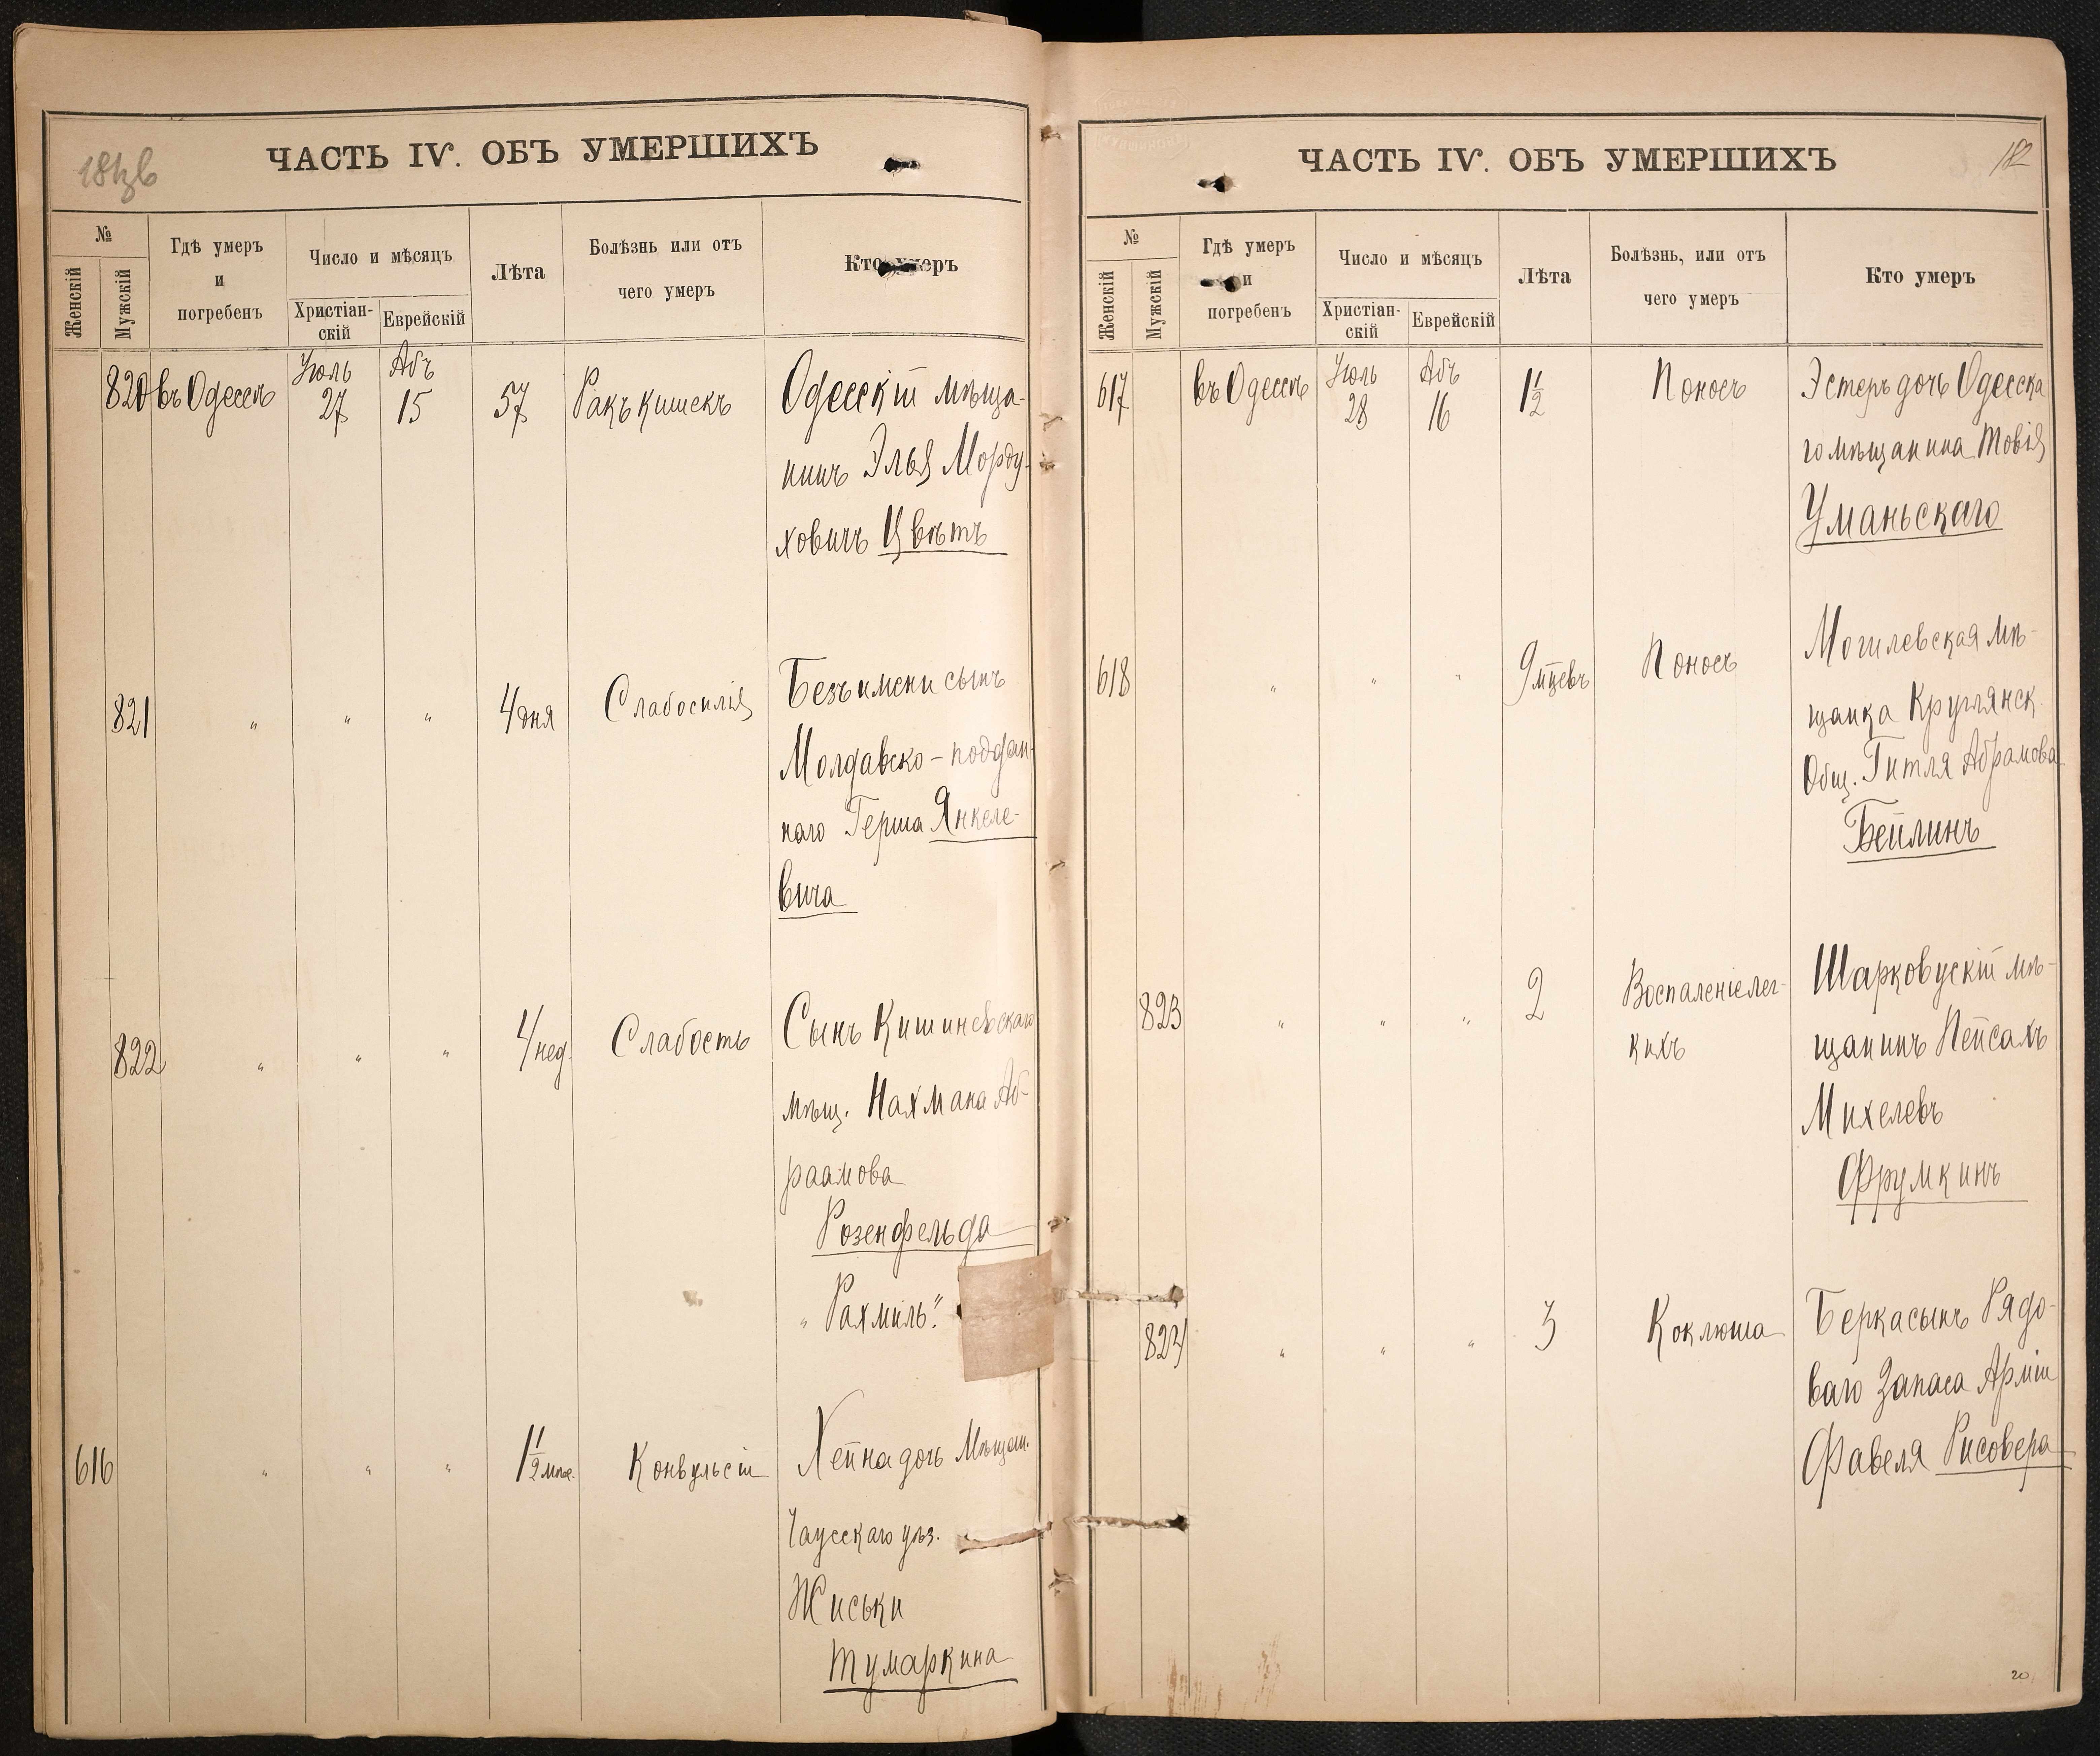 ЧАСТЬ IV. ОБЪ УМЕРШИХЪ
№
Женскій
Мужскій
Гдѣ умеръ
и
погребенъ
Число и мѣсяцъ
Христіан-
скій
Еврейскій
Лѣта
Болѣзнь или отъ
чего умеръ
Кто умеръ
820 въ Одессѣ Іюль 27 Абъ 15 57 Ракъ кишекъ Одесскій мѣща-
нинъ Элья Морду-
ховичъ Цвѣтъ
821 " " " 4 дня Слабосилія Безъ имени сынъ
Молдавско-поддан-
наго Герша Янкеле-
вича
822 " " " 4 нед. Слабость Сынъ Кишиневскаго
мѣщ. Нахмана Аб-
раамова
Розенфельда
"Рахмиль".
616 " " " 1 1/2 мѣс. Конвульсіи Хейна дочь Мѣщан.
Чаусскаго уѣз.
Жиськи
Тумаркина
ЧАСТЬ IV. ОБЪ УМЕРШИХЪ
182
№
Женскій
Мужскій
Гдѣ умеръ
и
погребенъ
Число и мѣсяцъ
Христіан-
скій
Еврейскій
Лѣта
Болѣзнь, или отъ
чего умеръ
Кто умеръ
617 въ Одессѣ Іюль 28 Абъ 16 1 1/2 Поносъ Эстеръ дочь Одесска
го мѣщанина Товія
Уманьскаго
618 " " " 9 мѣсцевъ Поносъ Могилевская мѣ-
щанка Круглянск.
Общ. Гитля Абрамова
Бейлинъ
823 " " " 2 Воспаленіе лег-
кихъ
Шарковускій мѣ-
щанинъ Пейсахъ
Михелевъ
Фрумкинъ
824 " " " 3 Коклюша Берка сынъ Рядо-
ваго Запаса Арміи
Фавеля Рисовера
20